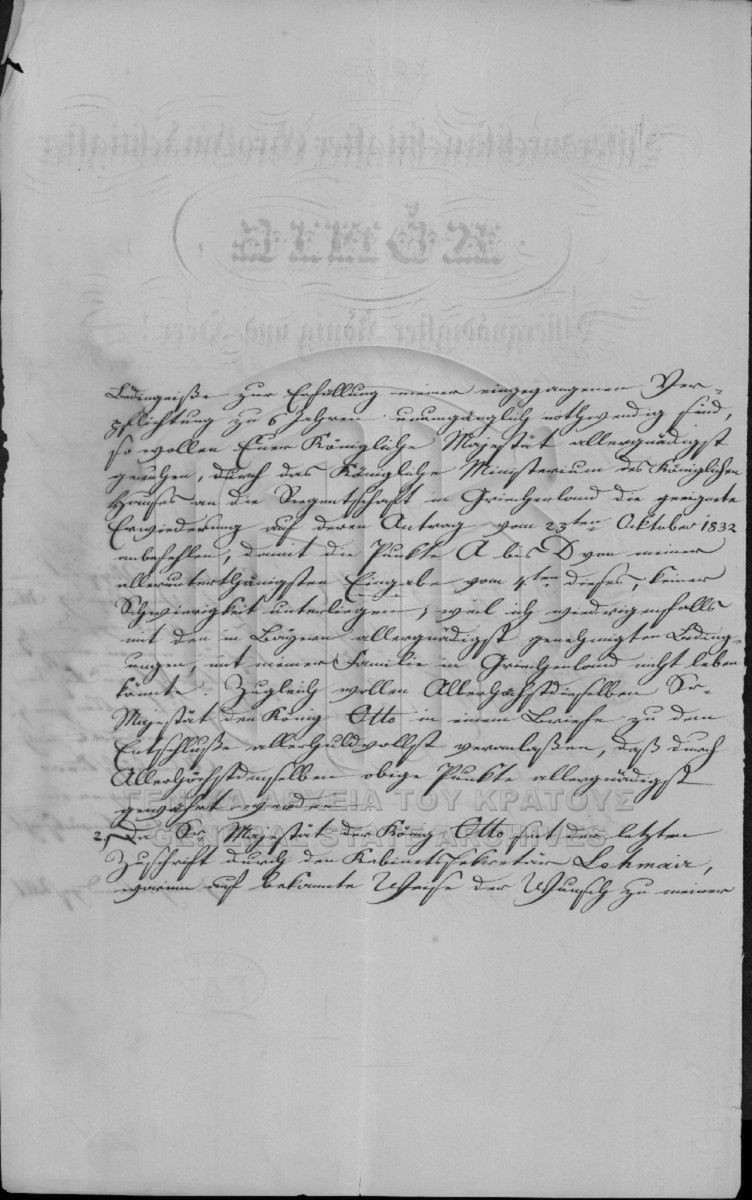 Bedingniße zur Erfüllung meiner eingegangenen Ver-
pflichtung zu 6 Jahren unumgänglich nothwendig sind,
so wollen Euer Königliche Majestät allergnädigst
geruhen, durch das Königliche Ministerium des Königlichen
Hauses an die Regentschaft in Griechenland die geeignete
Erwiederung auf deren Antrag vom 23ten Oktober 1832
anbefehlen, damit die Punkte A bis D von meiner
allerunterthänigsten Eingabe vom 4ten dieses, keiner
Schwierigkeit unterliegen, weil ich widrigenfalls
mit den in Bayern allergnädigst genehmigten Beding-
ungen, mit meiner Familie in Griechenland nicht leben
könnte. Zugleich wollen Allerhöchstdieselben Sr-
Majestät den König Otto in einem Briefe zu dem
Entschluße allerhuldvollst veranlaßen, daß durch
Allerhöchstdenselben obige Punkte allergnädigst
gewährt werden.
ΓΕΝΙΚΑ ΑΡΧΕΙΑ ΤΟΥ ΚΡΑΤΟΥΣ
GENERAL STATE ARCHIVES
2, Da Sr Majestät der König Otto seit der letzten
Zuschrift durch den Kabinetssekretär Lehmair,
worin auf bekannte Weise der Wunsch zu meiner